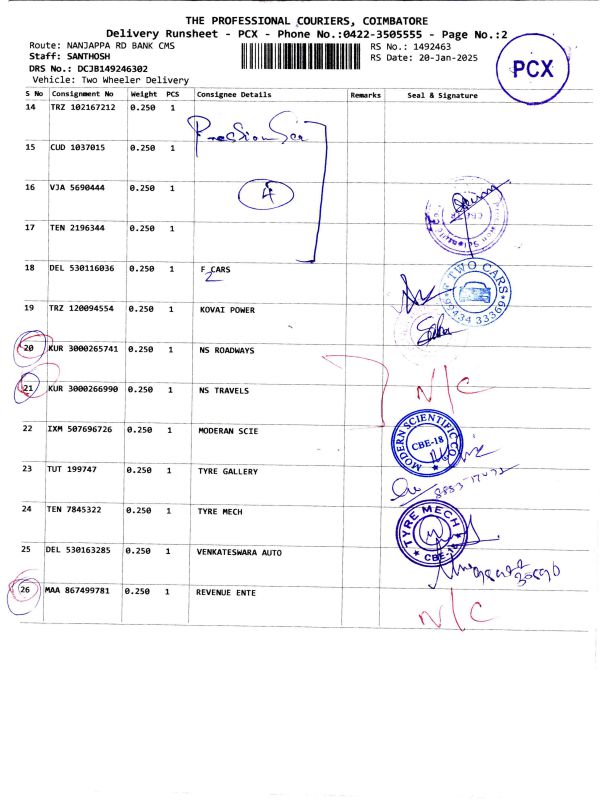 THE PROFESSIONAL COURIERS, COIMBATORE
Delivery Runsheet - PCX - Phone No.:0422-3505555 - Page No.:2
Route: NANJAPPA RD BANK CMS
RS No.: 1492463
Staff: SANTHOSH
RS Date: 20-Jan-2025
DRS No.: DCJB149246302
Vehicle: Two Wheeler Delivery
PCX
S No Consignment No Weight PCS Consignee Details Remarks Seal & Signature
14 TRZ 102167212 0.250 1
15 CUD 1037015 0.250 1
4
16 VJA 5690444 0.250 1
17 TEN 2196344 0.250 1
18 DEL 530116036 0.250 1 F CARS
2
F TWO CARS
94434 33369
19 TRZ 120094554 0.250 1 KOVAI POWER
20 KUR 3000265741 0.250 1 NS ROADWAYS
21 KUR 3000266990 0.250 1 NS TRAVELS
N/C
22 IXM 507696726 0.250 1 MODERAN SCIE
MODERN SCIENTIFIC CO
CBE-18
23 TUT 199747 0.250 1 TYRE GALLERY
24 TEN 7845322 0.250 1 TYRE MECH
TYRE MECH
CBE-18
25 DEL 530163285 0.250 1 VENKATESWARA AUTO
26 MAA 867499781 0.250 1 REVENUE ENTE
N/C